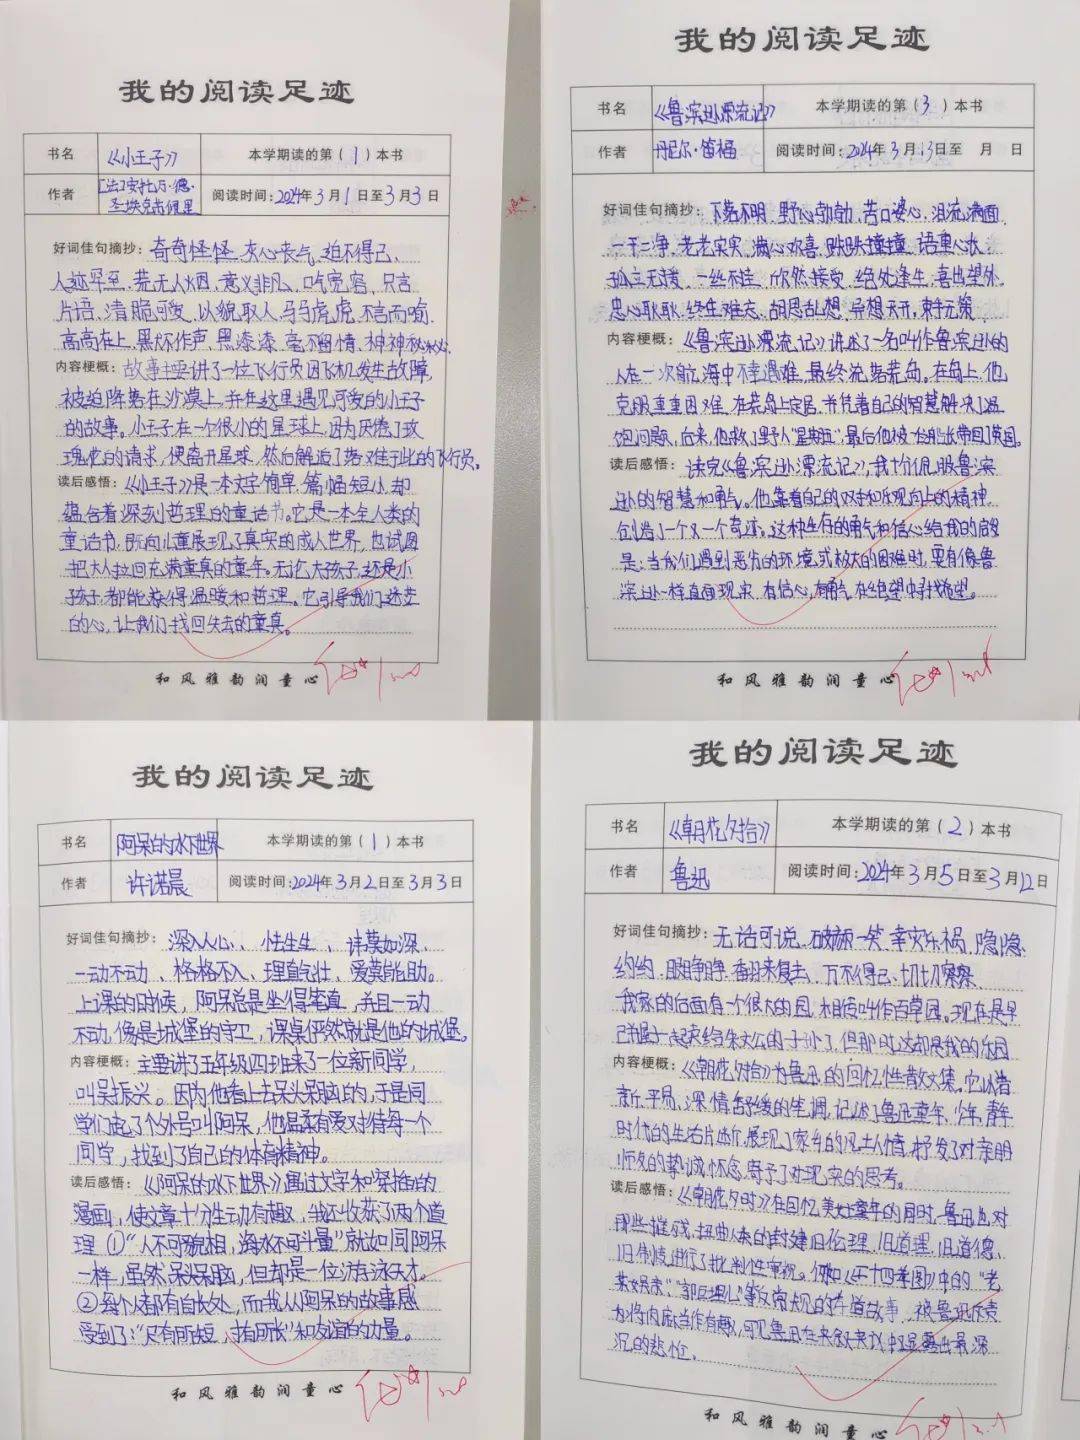 我的阅读足迹
书名 《小王子》 本学期读的第(1)本书
作者 [法]安托万·德·圣埃克苏佩里 阅读时间:2024年3月1日至3月3日
好词佳句摘抄:奇奇怪怪、灰心丧气、迫不得已、
人迹罕至、荒无人烟、意义非凡、吃宽容、只言
片语、清脆可爱、以貌取人、马马虎虎、不言而喻、
高高在上、黑漆漆、毫不留情、神神秘秘
内容梗概:故事主要讲了一位飞行员因飞机发生故障,
被迫降落在沙漠上,并在这里遇见可爱的小王子
的故事。小王子在一个很小的星球上,因为厌倦了玫
瑰他的请求,便离开星球,然后解逅了落难于此的飞行员。
读后感悟:《小王子》是一本文字简单,篇幅短小,却
蕴含着深刻哲理的童话书。它是一本全人类的
童话书,既向儿童展现了真实的成人世界,也试图
把大人拉回充满童真的童年。无论大孩子,还是小
孩子,都能获得温暖和哲理。它引导我们迷茫
的心,让我们找回失去的童真。
和风雅韵润童心
我的阅读足迹
书名 《鲁滨逊漂流记》 本学期读的第(3)本书
作者 丹尼尔·笛福 阅读时间:2024年3月13日至 月 日
好词佳句摘抄:下落不明、野心勃勃、苦口婆心、泪流满面、
一干二净、老老实实、满心欢喜、跌跌撞撞、语重心长、
孤立无援、一丝不挂、欣然接受、绝处逢生、喜出望外、
忠心耿耿、终生难忘、胡思乱想、异想天开、束手无策
内容梗概:《鲁滨逊漂流记》讲述了一名叫作鲁滨逊的
人在一次航海中不幸遇难,最终流落荒岛。在岛上,他
克服重重困难,在荒岛上定居,并凭着自己的智慧解决了温
饱问题,后来,他救了野人“星期五”,最后他被一艘船长带回了英国。
读后感悟:读完《鲁滨逊漂流记》,我十分佩服鲁滨
逊的智慧和勇气。他靠着自己的双手和乐观向上的精神,
创造了一个又一个奇迹。这种生存的勇气和信心给我的启发
是:当我们遇到恶劣的环境或极大的困难时,要有像鲁
滨逊一样直面现实,有信心,有勇气,在绝望中寻找希望。
和风雅韵润童心
我的阅读足迹
书名 阿呆的水下世界 本学期读的第(1)本书
作者 许诺晨 阅读时间:2024年3月2日至3月3日
好词佳句摘抄:深入人心、怯生生、讳莫如深、
一动不动、格格不入、理直气壮、爱莫能助。
上课的时候,阿呆总是坐得笔直,并且一动
不动,像是城堡的守卫,课桌俨然就是他的城堡。
内容梗概:主要讲了五年级四班来了一位新同学,
叫吴振兴。因为他看上去呆头呆脑的,于是同
学们起了个外号叫阿呆,他温柔有爱对待每一个
同学,找到了自己的体育精神。
读后感悟:《阿呆的水下世界》通过文字和穿插的
漫画,使文章十分生动有趣,我还收获了两个道
理①“人不可貌相,海水不可斗量”就如同阿呆
一样,虽然呆头呆脑,但却是一位游泳天才。
②每个人都有自长处,而我从阿呆的故事感
受到了:“尺有所短,寸有所长”和友谊的力量。
和风雅韵润童心
我的阅读足迹
书名 《朝花夕拾》 本学期读的第(2)本书
作者 鲁迅 阅读时间:2024年3月5日至3月12日
好词佳句摘抄:无话可说、破颜一笑、幸灾乐祸、隐隐
约约、眼睁睁、翻来复去、万不得已、切切察察
我家的后面有一个很大的园,相传叫作百草园。现在是早
已并屋子一起卖给朱文公的子孙了,但那时这却是我的乐园
内容梗概:《朝花夕拾》为鲁迅的回忆性散文集。它以清
新、平易、深情舒缓的笔调,记述了鲁迅童年、少年、青年
时代的生活片断,展现了家乡的风土人情,抒发了对亲朋
师友的挚诚怀念,寄予了对现实的思考。
读后感悟:《朝花夕时》在回忆美好童年的同时,鲁迅也对
那些摧残、扭曲人来的封建旧伦理、旧道理、旧道德、
旧传统进行了批判性审视。例如《二十四孝图》中的“老
莱娱亲”、“郭巨埋儿”等反常规的孝道故事,被鲁迅斥责
为将肉麻当作有趣,可见鲁迅在夹叙夹议中显露出最深
沉的悲忧。
和风雅韵润童心